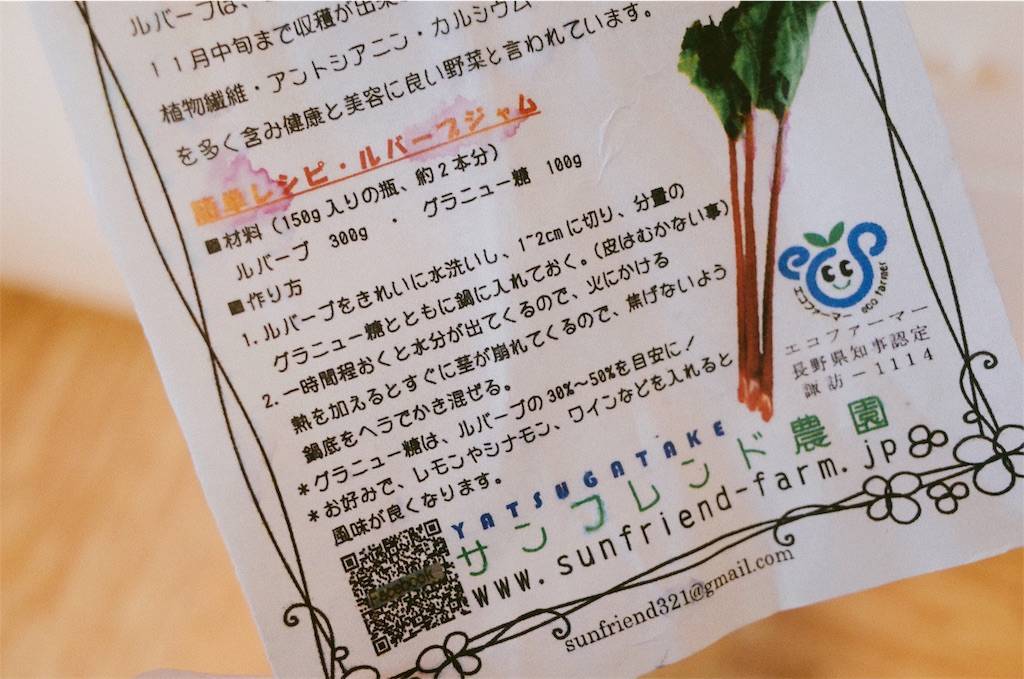 ルバーブは、
11月中旬まで収穫が出来
植物繊維・アントシアニン・カルシウム
を多く含み健康と美容に良い野菜と言われています。
簡単レシピ・ルバーブジャム
■材料（150g入りの瓶、約2本分）
ルバーブ 300g ・ グラニュー糖 100g
■作り方
1. ルバーブをきれいに水洗いし、1~2cmに切り、分量の
グラニュー糖とともに鍋に入れておく。（皮はむかない事）
2. 一時間程おくと水分が出てくるので、火にかける
熱を加えるとすぐに茎が崩れてくるので、焦げないよう
鍋底をヘラでかき混ぜる。
*グラニュー糖は、ルバーブの30%~50%を目安に！
*お好みで、レモンやシナモン、ワインなどを入れると
風味が良くなります。
エコファーマー eco farmer
エコファーマー
長野県知事認定
諏訪－1114
YATSUGATAKE
サンフレンド農園
www.sunfriend-farm.jp
sunfriend321@gmail.com